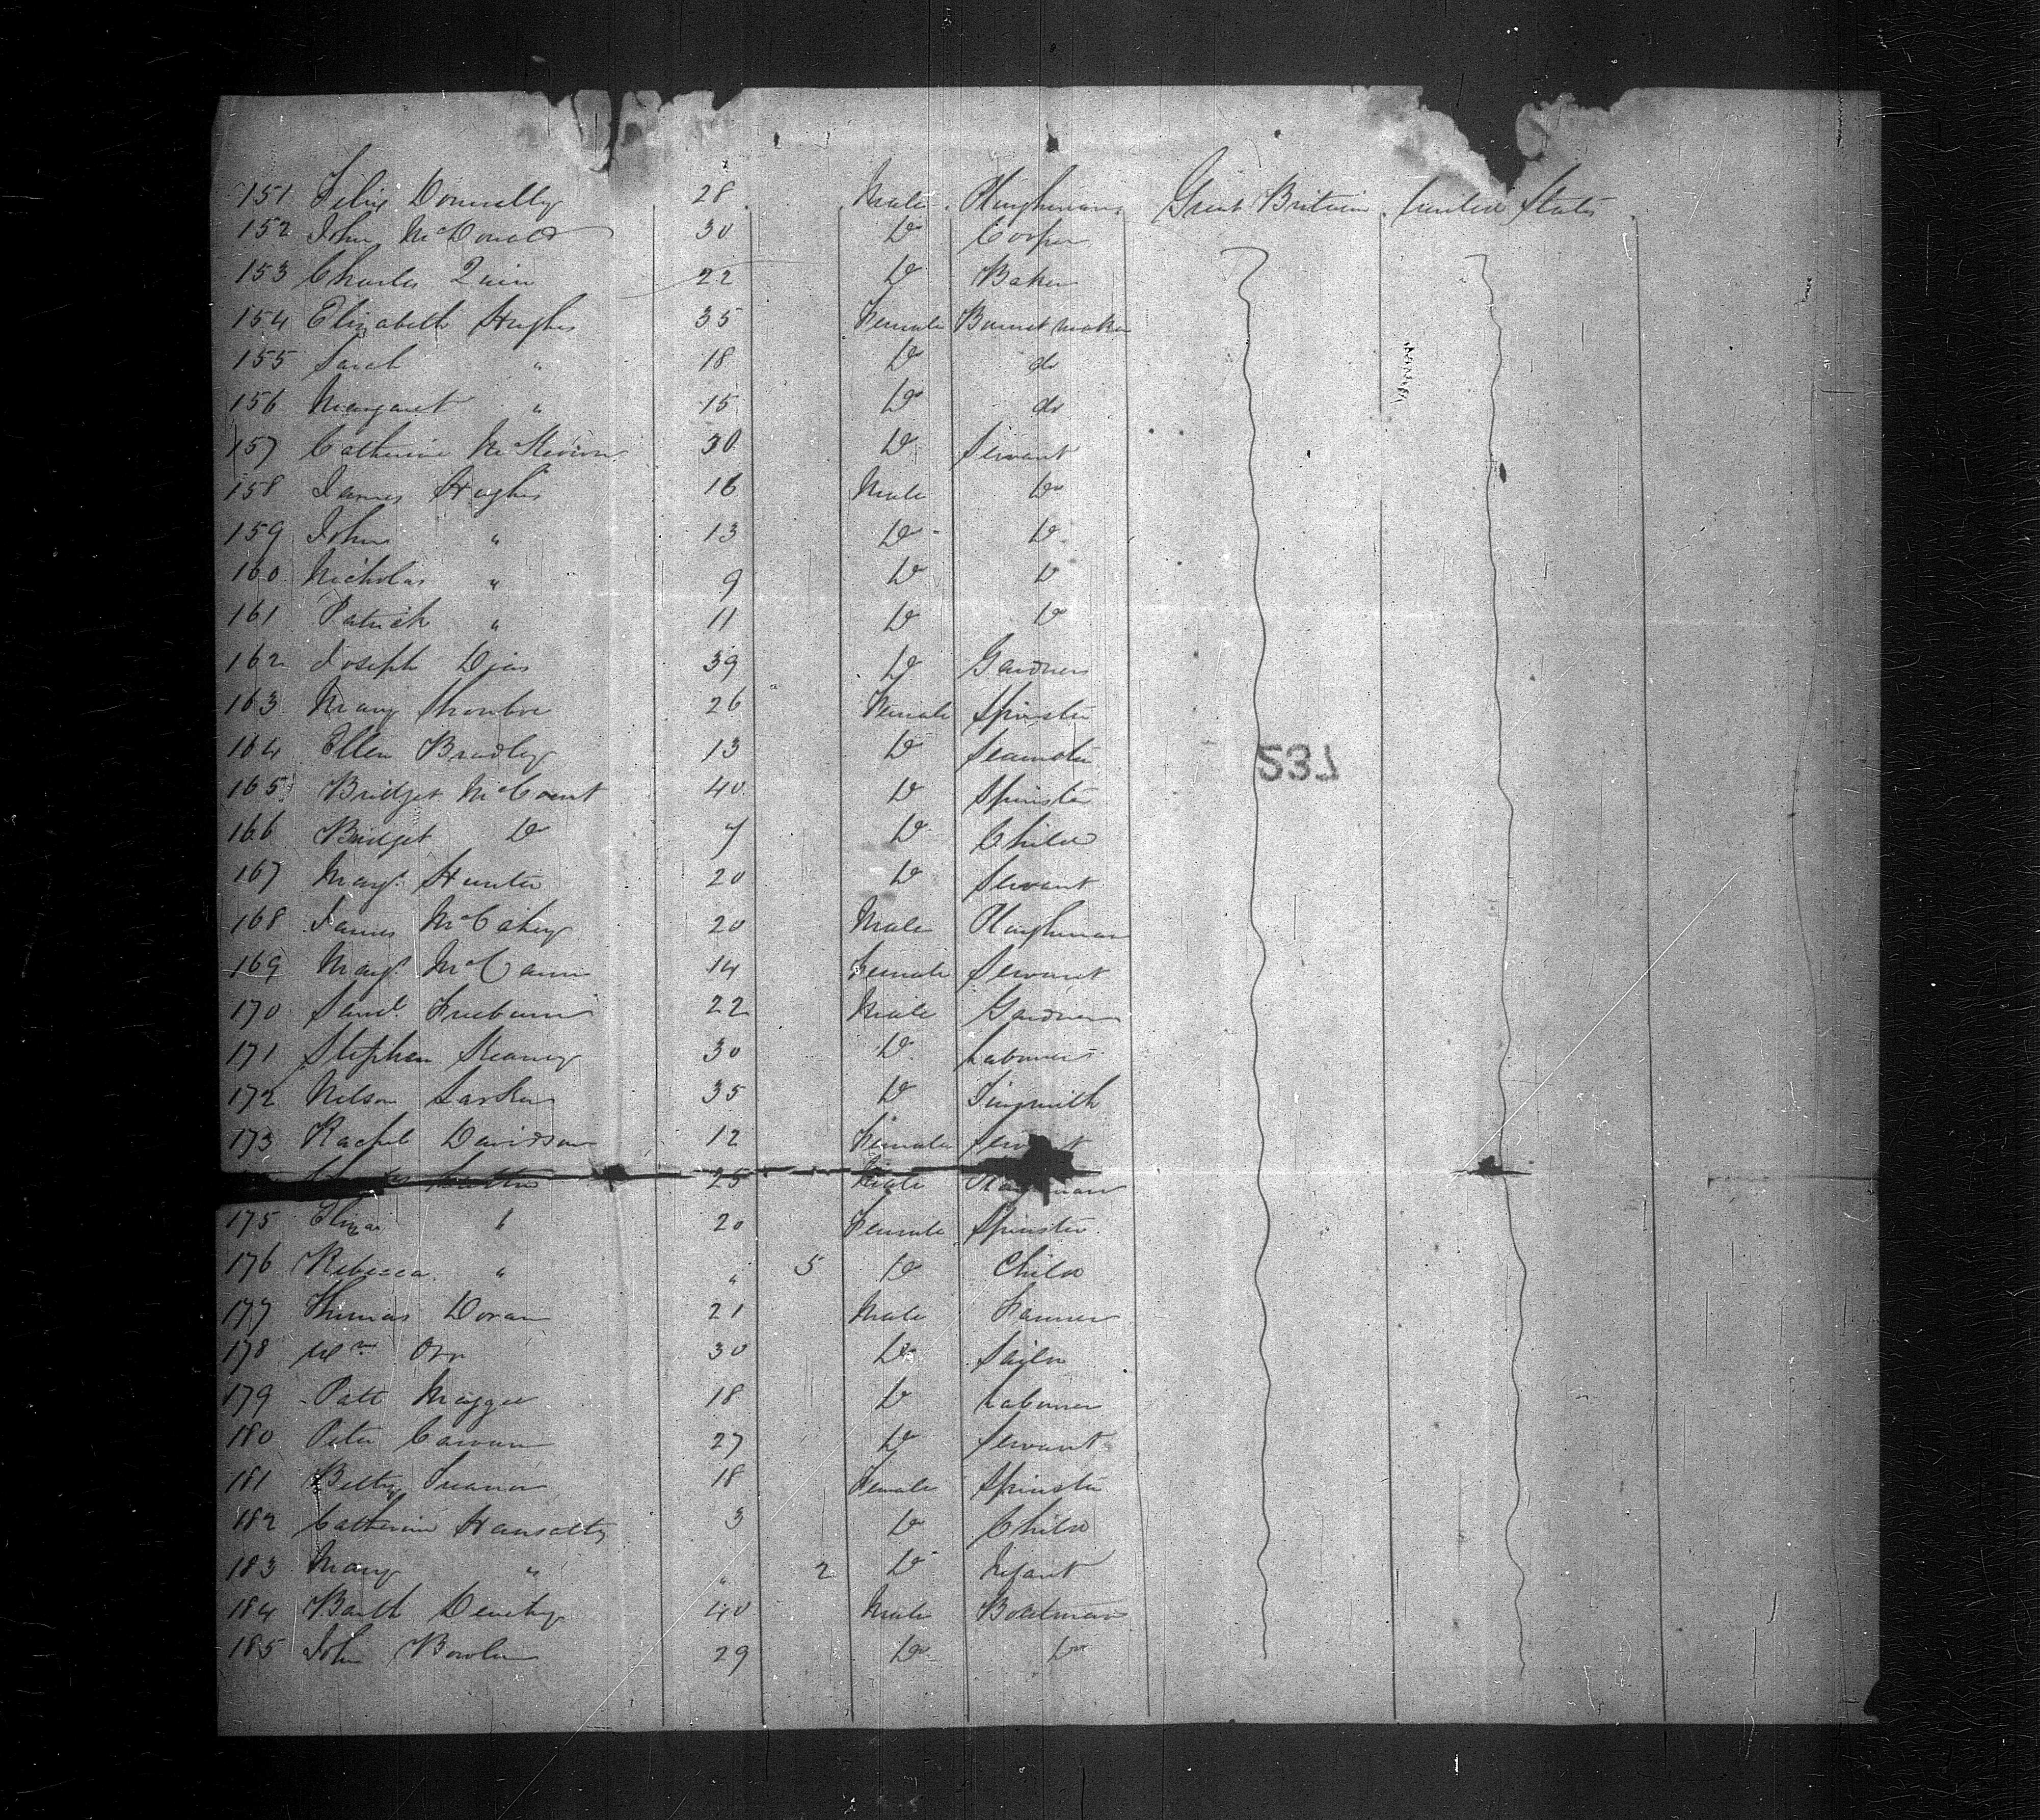 151 Felix Donnelly 28 Male Ploughman Great Britain United States
152 John McDonald 30 Do Cooper
153 Charles Quin 22 Do Baker
154 Elizabeth Hughes 35 Female Bonnet maker
155 Sarah " 18 Do do
156 Margaret " 15 Do do
157 Catherine 30 Do Servant
158 James Hughes 16 Male Do
159 John " 13 Do Do
160 Nicholas " 9 Do Do
161 Patrick " 11 Do Do
162 Joseph 39 Do Gardner
163 Mary 26 Female Spinster
164 Ellen Bradley 13 Do Seamster
165 Bridget McCourt 40 Do Spinster
166 Bridget Do 7 Do Child
167 Margt Hunter 20 Do Servant
168 James McCahey 20 Male Ploughman
169 Margt McCann 14 Female Servant
170 Saml Freeburn 22 Male Gardner
171 Stephen 30 Do Labourer
172 Nelson 35 Do Tinsmith
173 Rachel Davidson 12 Female
25 Male
175 Eliza " 20 Female Spinster
176 Rebecca " " 5 Do Child
177 Thomas Doran 21 Male Farmer
178 Wm Orr 30 Do Sailor
179 Patt Maggee 18 Do Labourer
180 Peter 27 Do Servant
181 Betty Treanor 18 Female Spinster
182 Catherine 3 Do Child
183 Mary " " 2 Do Infant
184 Barth 40 Male Boatman
185 John 29 Do Do
237